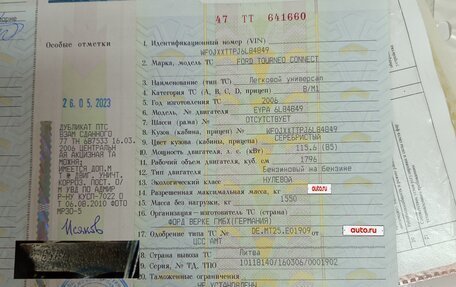 47 ТТ 641660
Особые отметки
26.05.2023
ДУБЛИКАТ ПТС
ВЗАМ СДАННОГО
77 ТН 687533 16.03.
2006 ЦЕНТРАЛЬН
АЯ АКЦИЗНАЯ ТА
МОЖНЯ;
ИМЕЕТСЯ ДОП.М
Т.# ДВИГ. УНИЧТ.
КОРРОЗ. ПОСТ. О/
М УВД ПО АДМИР
Р-НУ КУСП-7022 О
Т 06.08.2010 ФОТО
МРЭО-5
1. Идентификационный номер (VIN)
WF0JXXTTPJ6L84849
2. Марка, модель ТС FORD TOURNEO CONNECT
3. Наименование (тип ТС) Легковой универсал
4. Категория ТС (А, В, С, D, прицеп) В/М1
5. Год изготовления ТС 2006
6. Модель, № двигателя EYPA 6L84849
7. Шасси (рама) № ОТСУТСТВУЕТ
8. Кузов (кабина, прицеп) № WF0JXXTTPJ6L84849
9. Цвет кузова (кабины, прицепа) СЕРЕБРИСТЫЙ
10. Мощность двигателя, л. с. (кВт) 115.6 (85)
11. Рабочий объем двигателя, куб. см 1796
12. Тип двигателя Бензиновый на бензине
13. Экологический класс НУЛЕВОЙ
14. Разрешенная максимальная масса, кг auto.ru
15. Масса без нагрузки, кг 1550
16. Организация – изготовитель ТС (страна)
ФОРД ВЕРКЕ ГМБХ(ГЕРМАНИЯ)
17. Одобрение типа ТС № DE.MT25.E01909 от auto.ru
ЦСС АМТ
18. Страна вывоза ТС Литва
19. Серия, № ТД, ТПО 10118140/160306/0001902
20. Таможенные ограничения
НЕ УСТАНОВЛЕНЫ